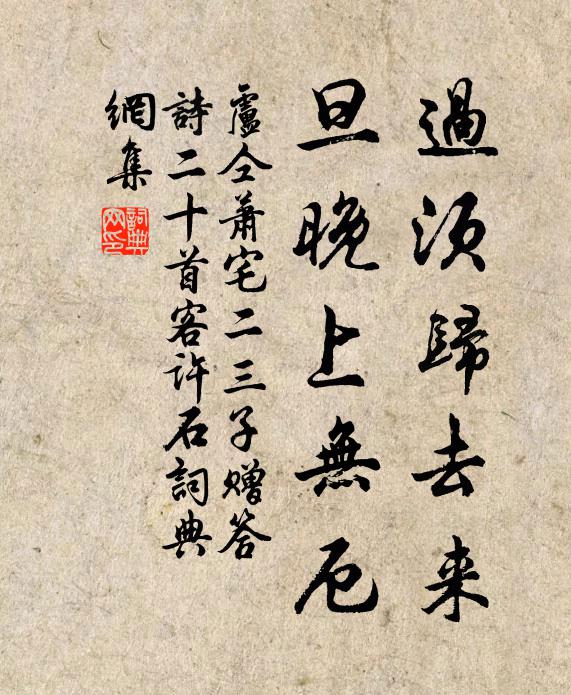 過須歸去来
旦晚上無厄
盧仝蕭宅二三子贈答
詩二十首客許石詞典
網集
詞典網印